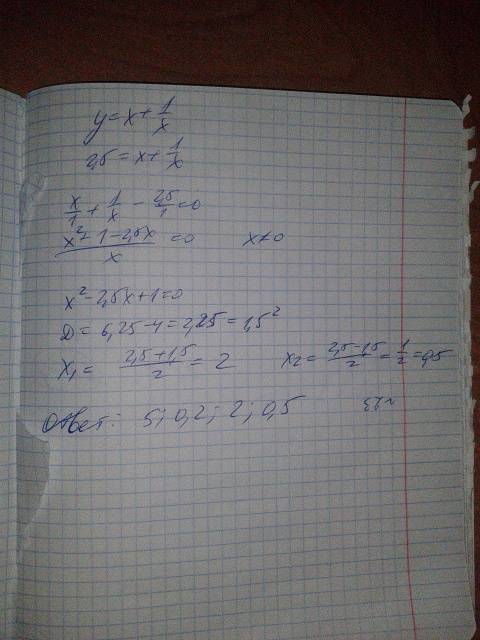 y = x + 1/x
2,5 = x + 1/x
x/1 + 1/x - 2,5/1 = 0
x² + 1 - 2,5x / x = 0 x ≠ 0
x² - 2,5x + 1 = 0
D = 6,25 - 4 = 2,25 = 1,5²
x₁ = 2,5 + 1,5 / 2 = 2 x₂ = 2,5 - 1,5 / 2 = 1/2 = 0,5
Ответ: 5; 0,2; 2; 0,5